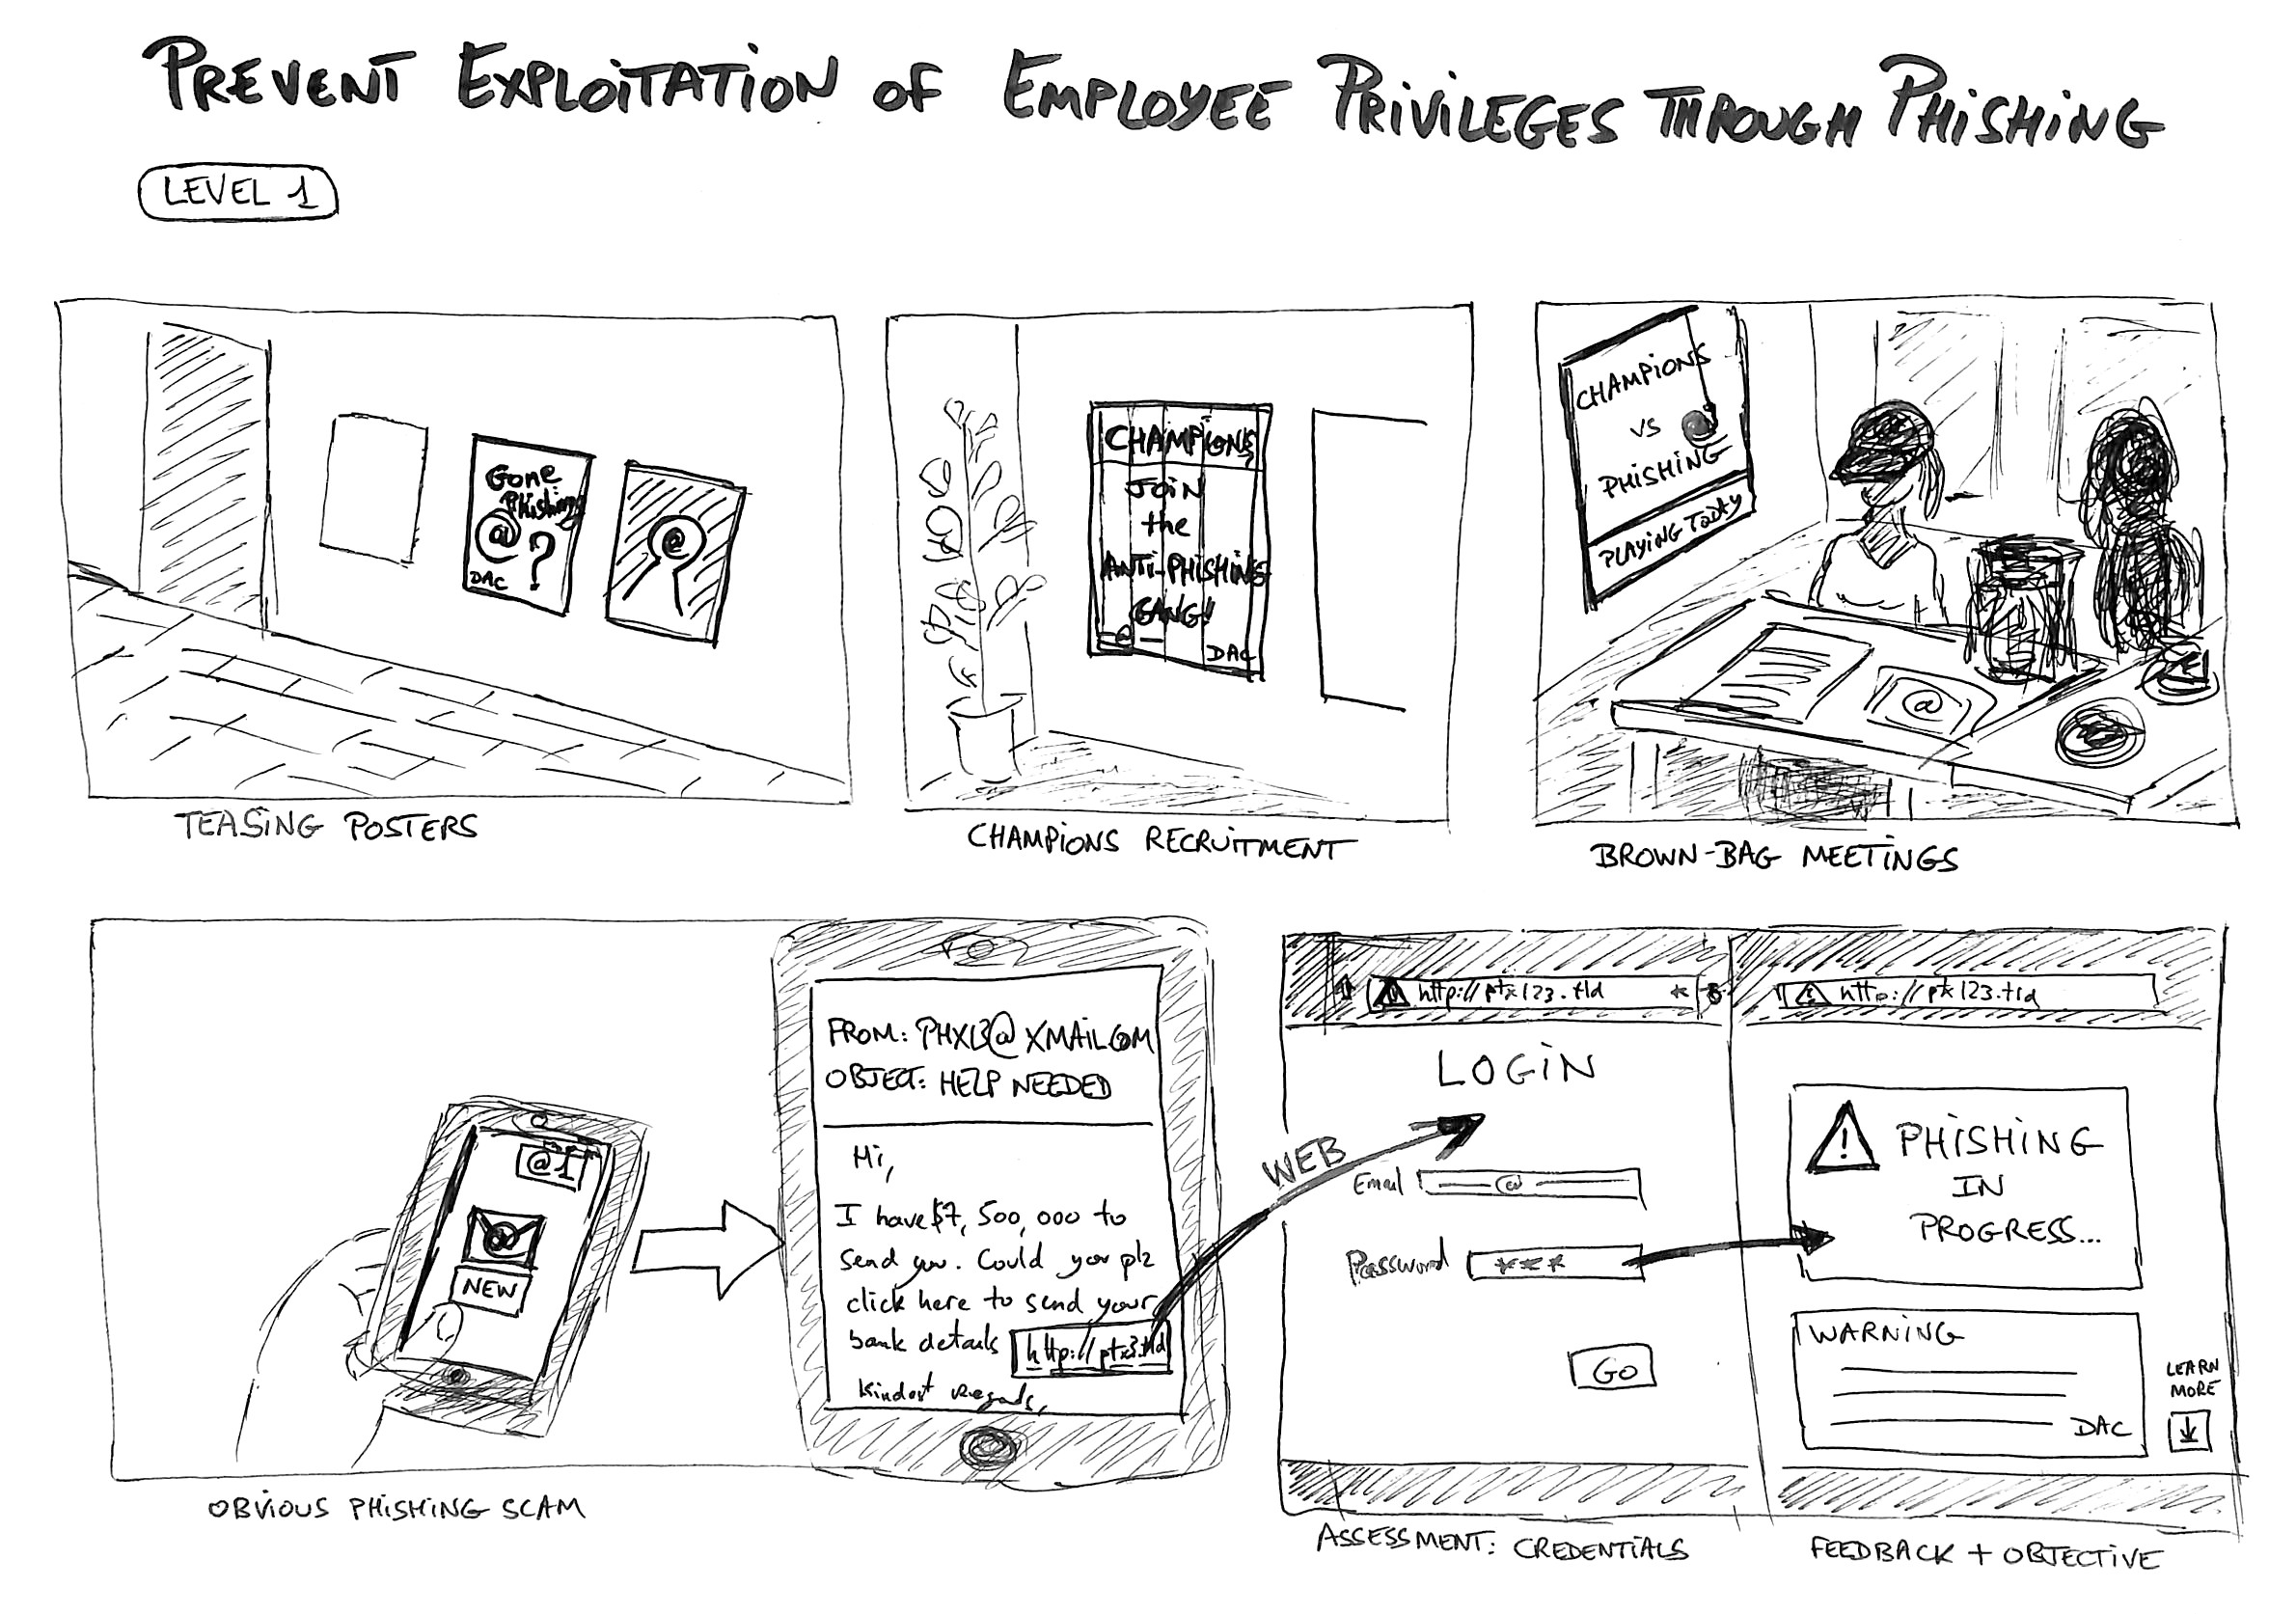 PREVENT EXPLOITATION OF EMPLOYEE PRIVILEGES THROUGH PHISHING
LEVEL 1
Gone
Phishing
@ ?
DAC
@
TEASING POSTERS
CHAMPIONS
JOIN
the
ANTI-PHISHING
GANG!!
@
DAC
CHAMPIONS RECRUITMENT
CHAMPIONS
VS
PHISHING
PLAYING TODAY
@
BROWN-BAG MEETINGS
@ 1
@
NEW
OBVIOUS PHISHING SCAM
FROM: PHXB@XMAIL.COM
OBJECT: HELP NEEDED
Hi,
I have $7,500,000 to
send you. Could you plz
click here to send your
bank details http://ptx3.tld
Kindest Regards,
WEB
http://ptx123.tld
LOGIN
Email @
Password ***
GO
ASSESSMENT: CREDENTIALS
http://ptx123.tld
! PHISHING
IN
PROGRESS...
WARNING
DAC
LEARN
MORE
FEEDBACK + OBJECTIVE